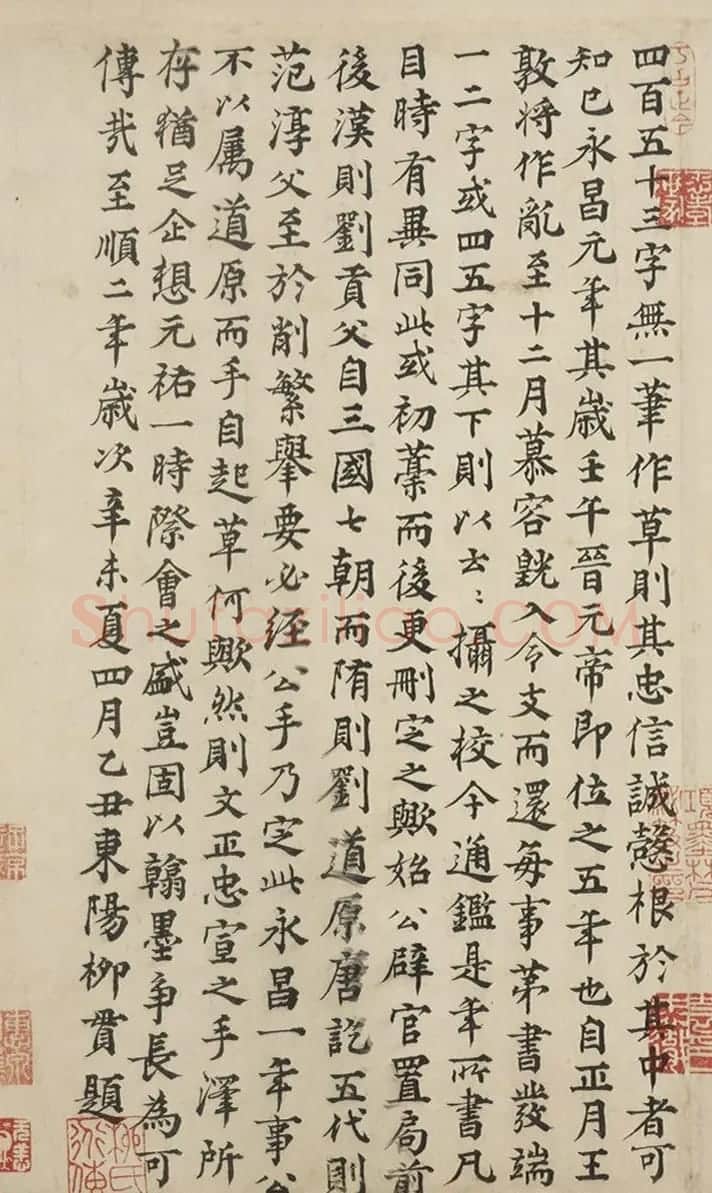 四百五十三字無一筆作草則其忠信誠愨根於其中者可
知已永昌元年其歲壬午晉元帝即位之五年也自正月王
敦將作亂至十二月慕容皝入令支而還每事苐書發端
一二字或四五字其下則以云〻攝之校今通鑑是年所書凡
目時有異同此或初藁而後更刪定之歟始公辟官置局前
後漢則劉貢父自三國七朝而隋則劉道原唐訖五代則
范淳父至於削繁舉要必經公手乃定此永昌一年事公
不以属道原而手自起草何歟然則文正忠宣之手澤所
存猶足企想元祐一時際會之盛豈固以翰墨爭長為可
傳哉至順二年歲次辛未夏四月乙丑東陽柳貫題
Shufaziliao.COM